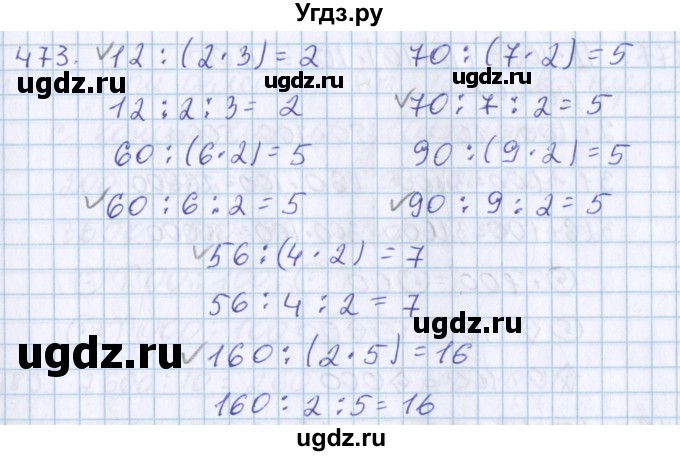 Угдз.ру
473. ✓12 : (2 · 3) = 2 70 : (7 · 2) = 5
ugdz.ru ugdz.ru
12 : 2 : 3 = 2 ✓70 : 7 : 2 = 5
60 : (6 · 2) = 5 90 : (9 · 2) = 5
✓60 : 6 : 2 = 5 ✓90 : 9 : 2 = 5
ugdz.ru
✓56 : (4 · 2) = 7
56 : 4 : 2 = 7
ugdz.ru ugdz.ru
✓160 : (2 · 5) = 16
160 : 2 : 5 = 16
ugdz.ru